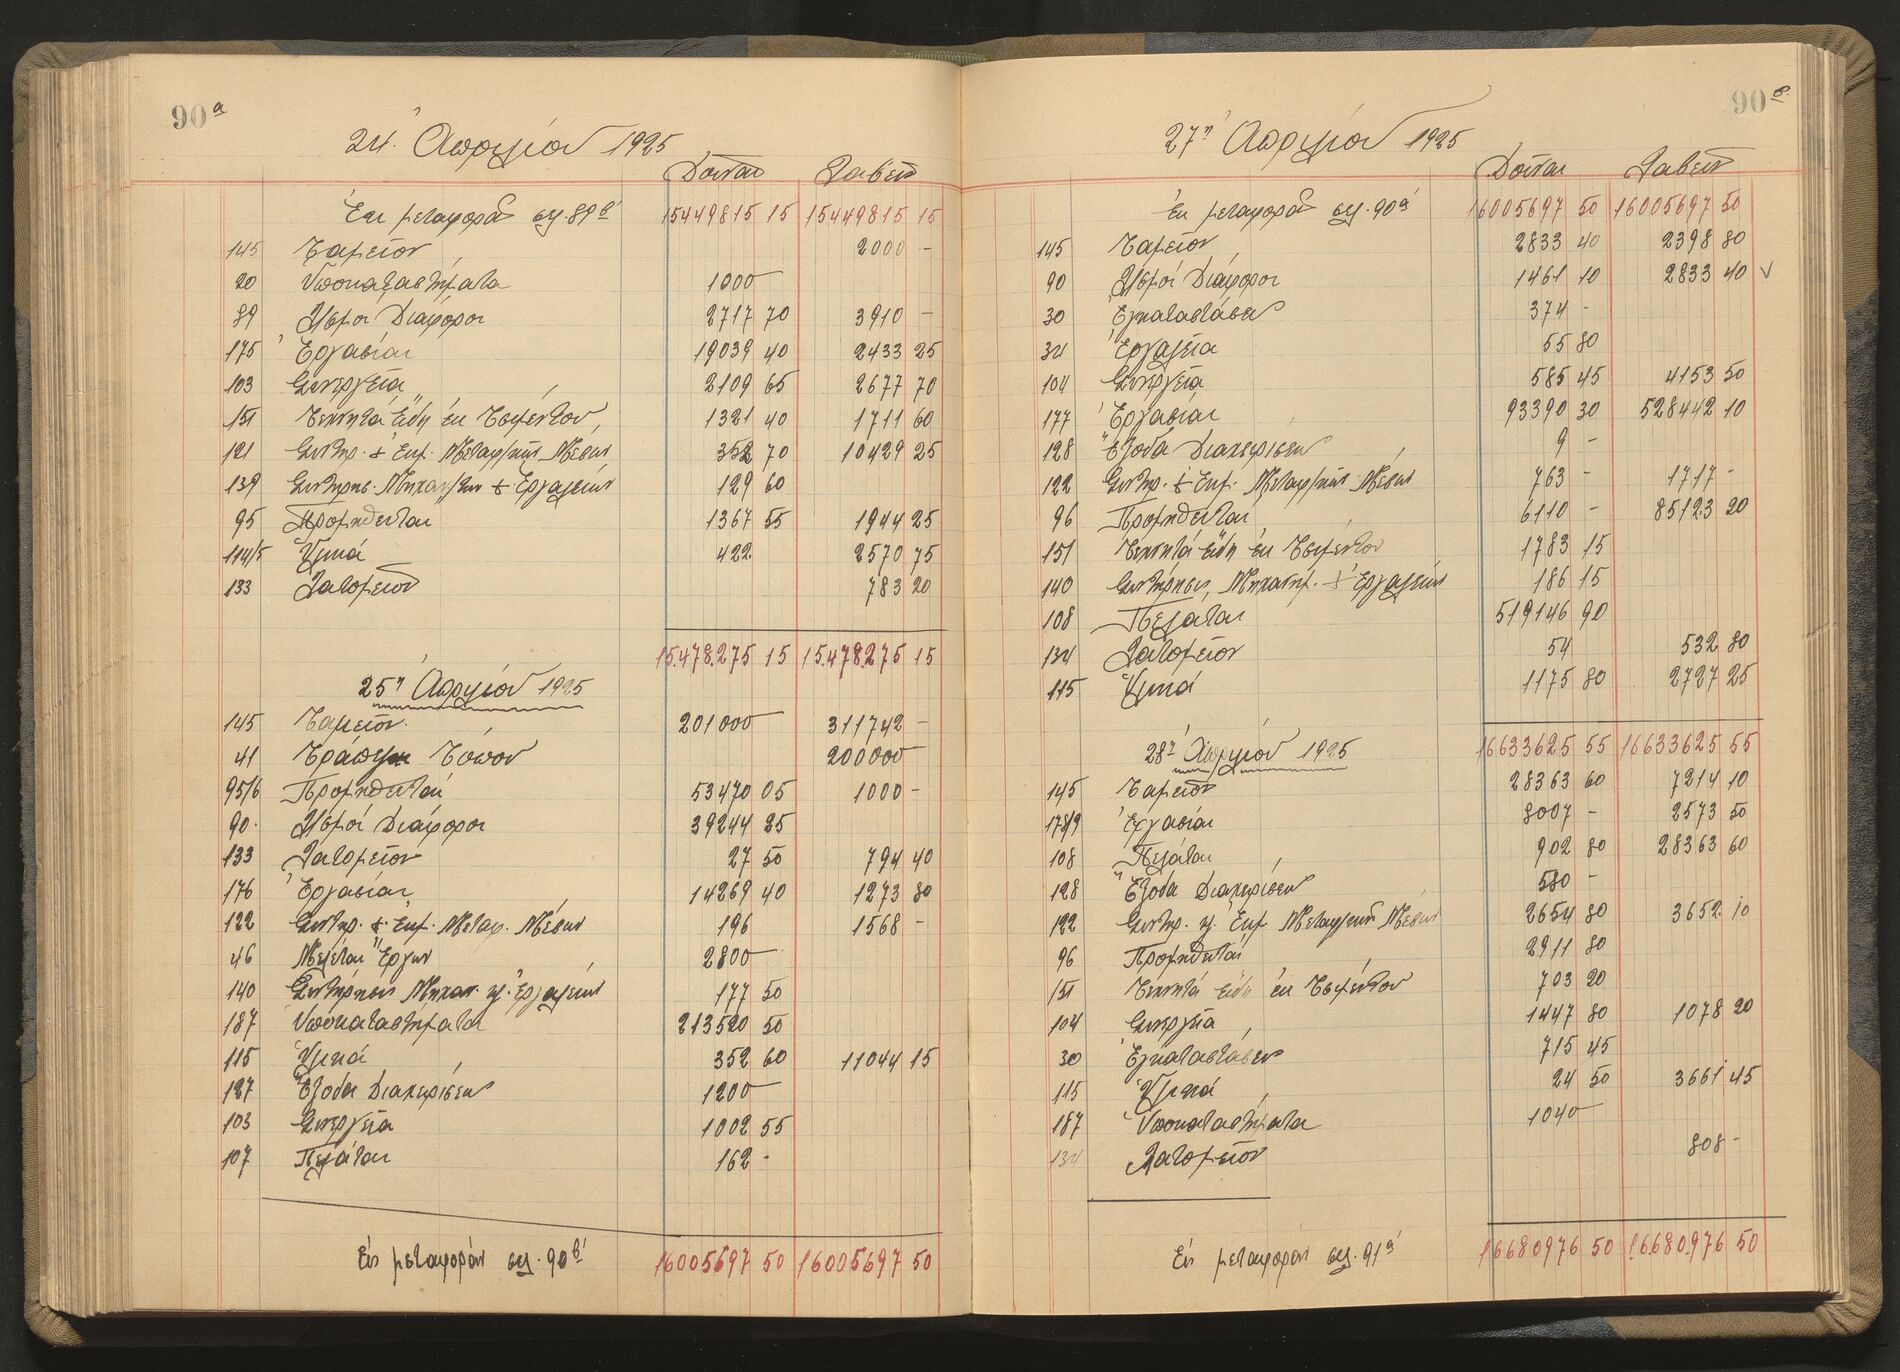 90α
24 Απριλίου 1925
Δούναι Λαβείν
Εκ μεταφοράς σελ. 89β 15449815 15 15449815 15
145 Ταμείον 2000 –
20 Υποκαταστήματα 1000
89 Λ/σμοί Διάφοροι 2717 70 3910 –
175 Εργασίαι 19039 40 2433 25
103 Συνεργεία 2109 65 2677 70
151 Τεχνητά Είδη εκ Τσιμέντου 1321 40 1711 60
121 Συντηρ. & Εκμ. Μεταφ/κών Μέσων 352 70 10429 25
139 Συντήρησ. Μηχαν/των & Εργαλείων 129 60
95 Προμηθευταί 1367 55 1944 25
114/5 Υλικά 422 2570 75
133 Λατομείον 783 20
15.478.275 15 15.478.275 15
25η Απριλίου 1925
145 Ταμείον 201000 311742 –
41 Τράπεζαι Τόπου 200000
95/6 Προμηθευταί 53470 05 1000 –
90 Λ/σμοί Διάφοροι 39244 25
133 Λατομείον 27 50 794 40
176 Εργασίαι 14269 40 1273 80
122 Συντηρ. & Εκμ. Μεταφ. Μέσων 196 1568 –
46 Μελέται Έργων 2800
140 Συντήρησις Μηχαν. κ. Εργαλείων 177 50
187 Υποκαταστήματα 213520 50
115 Υλικά 352 60 11044 15
127 Έξοδα Διαχειρίσεως 1200
103 Συνεργεία 1002 55
107 Πελάται 162 -
Εις μεταφοράν σελ. 90β 16005697 50 16005697 50
90β
27η Απριλίου 1925
Δούναι Λαβείν
Εκ μεταφοράς σελ. 90α 16005697 50 16005697 50
145 Ταμείον 2833 40 2398 80
90 Λ/σμοί Διάφοροι 1461 10 2833 40 ✓
30 Εγκαταστάσεις 374 -
34 Εργαλεία 55 80
104 Συνεργεία 585 45 4153 50
177 Εργασίαι 93390 30 528442 10
128 Έξοδα Διαχειρίσεως 9 –
122 Συντηρ. & Εκμ. Μεταφ/κών Μέσων 763 - 1717 -
96 Προμηθευταί 6110 – 85123 20
151 Τεχνητά είδη εκ Τσιμέντου 1783 15
140 Συντήρησις Μηχανημ. & Εργαλείων 186 15
108 Πελάται 519146 90
134 Λατομείον 54 532 80
115 Υλικά 1175 80 2727 25
16633625 55 16633625 55
28η Απριλίου 1925
145 Ταμείον 28363 60 7214 10
178/9 Εργασίαι 8007 – 2573 50
108 Πελάται 902 80 28363 60
128 Έξοδα Διαχειρίσεως 580 –
122 Συντηρ. κ. Εκμ. Μεταφικών Μέσων 2654 80 3652 10
96 Προμηθευταί 2911 80
151 Τεχνητά είδη εκ Τσιμέντου 703 20
104 Συνεργεία 1447 80 1078 20
30 Εγκαταστάσεις 715 45
115 Υλικά 24 50 3661 45
187 Υποκαταστήματα 1040
134 Λατομείον 808 –
Εις μεταφοράν σελ. 91α 16680976 50 16680976 50